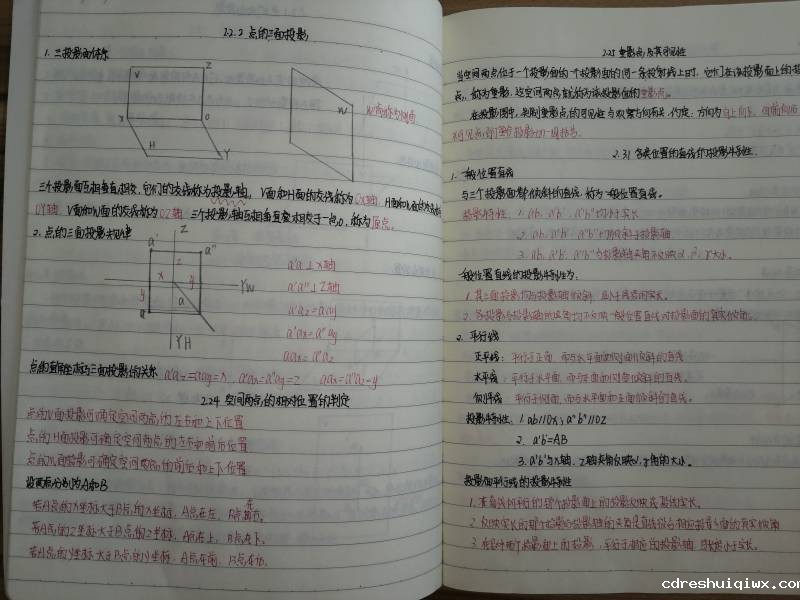 2.2.2 点的三面投影
1. 三投影面体系
V
Z
X
O
H
Y
W
W面称为侧面
三个投影面互相垂直相交,它们的交线称为投影轴, V面和H面的交线称为OX轴, H面和W面的交线称为
OY轴, V面和W面的交线称为OZ轴 三个投影轴互相垂直交于一点O, 称为原点。
2. 点的三面投影规律
Z
a'
a''
z
x
y
YW
y
a
YH
a'a⊥X轴
a'a''⊥Z轴
a'az=aay
a'ax=a''ay
aax=a''az
点的直角坐标与三面投影的关系 a'az=aay=x a'ax=a''ay=z aax=a''az=y
2.2.4 空间两点的相对位置的判定
点的V面投影可确定空间两点的左右和上下位置
点的H面投影可确定空间两点的左右和前后位置
点的W面投影可确定空间两点的前后和上下位置
设两点分别为A和B
若A点的X坐标大于B点的X坐标, A点在左, B点在右。
若A点的Z坐标大于B点的Z坐标, A点在上, B点在下。
若A点的Y坐标大于B点的Y坐标, A点在前, B点在后。
2.2.5 重影点及其可见性
当空间两点位于一个投影面的同一条投射线上时, 它们在该投影面上的投
点, 称为重影, 这空间两点就称为该投影面的重影点。
在投影图中, 判别重影点的可见性与观察方向有关, 约定: 方向为自上向下、自前向后
2.3.1 各类位置的直线的投影特性
1. 一般位置直线
与三个投影面都倾斜的直线, 称为一般位置直线。
投影特性: 1. ab、a'b'、a''b''均小于实长
2. ab、a'b'、a''b''均倾斜于投影轴
3. ab、a'b'、a''b''与投影轴夹角不反映α、β、γ大小。
一般位置直线的投影特性为:
1. 其三面投影均与投影轴倾斜, 且小于线段的实长。
2. 各投影与投影轴的夹角均不反映一般位置直线对投影面的真实倾角。
2. 平行线
正平线: 平行于正面, 而与水平面和侧面倾斜的直线
水平线: 平行于水平面, 而与正面和侧面倾斜的直线。
侧平线: 平行于侧面, 而与水平面和正面倾斜的直线。
投影特性: 1. ab//OX; a''b''//OZ
2. a'b'=AB
3. a'b'与X轴、Z轴夹角反映α、γ角的大小。
投影面平行线的投影特性
1. 在直线所平行的那个投影面上的投影反映线段实长。